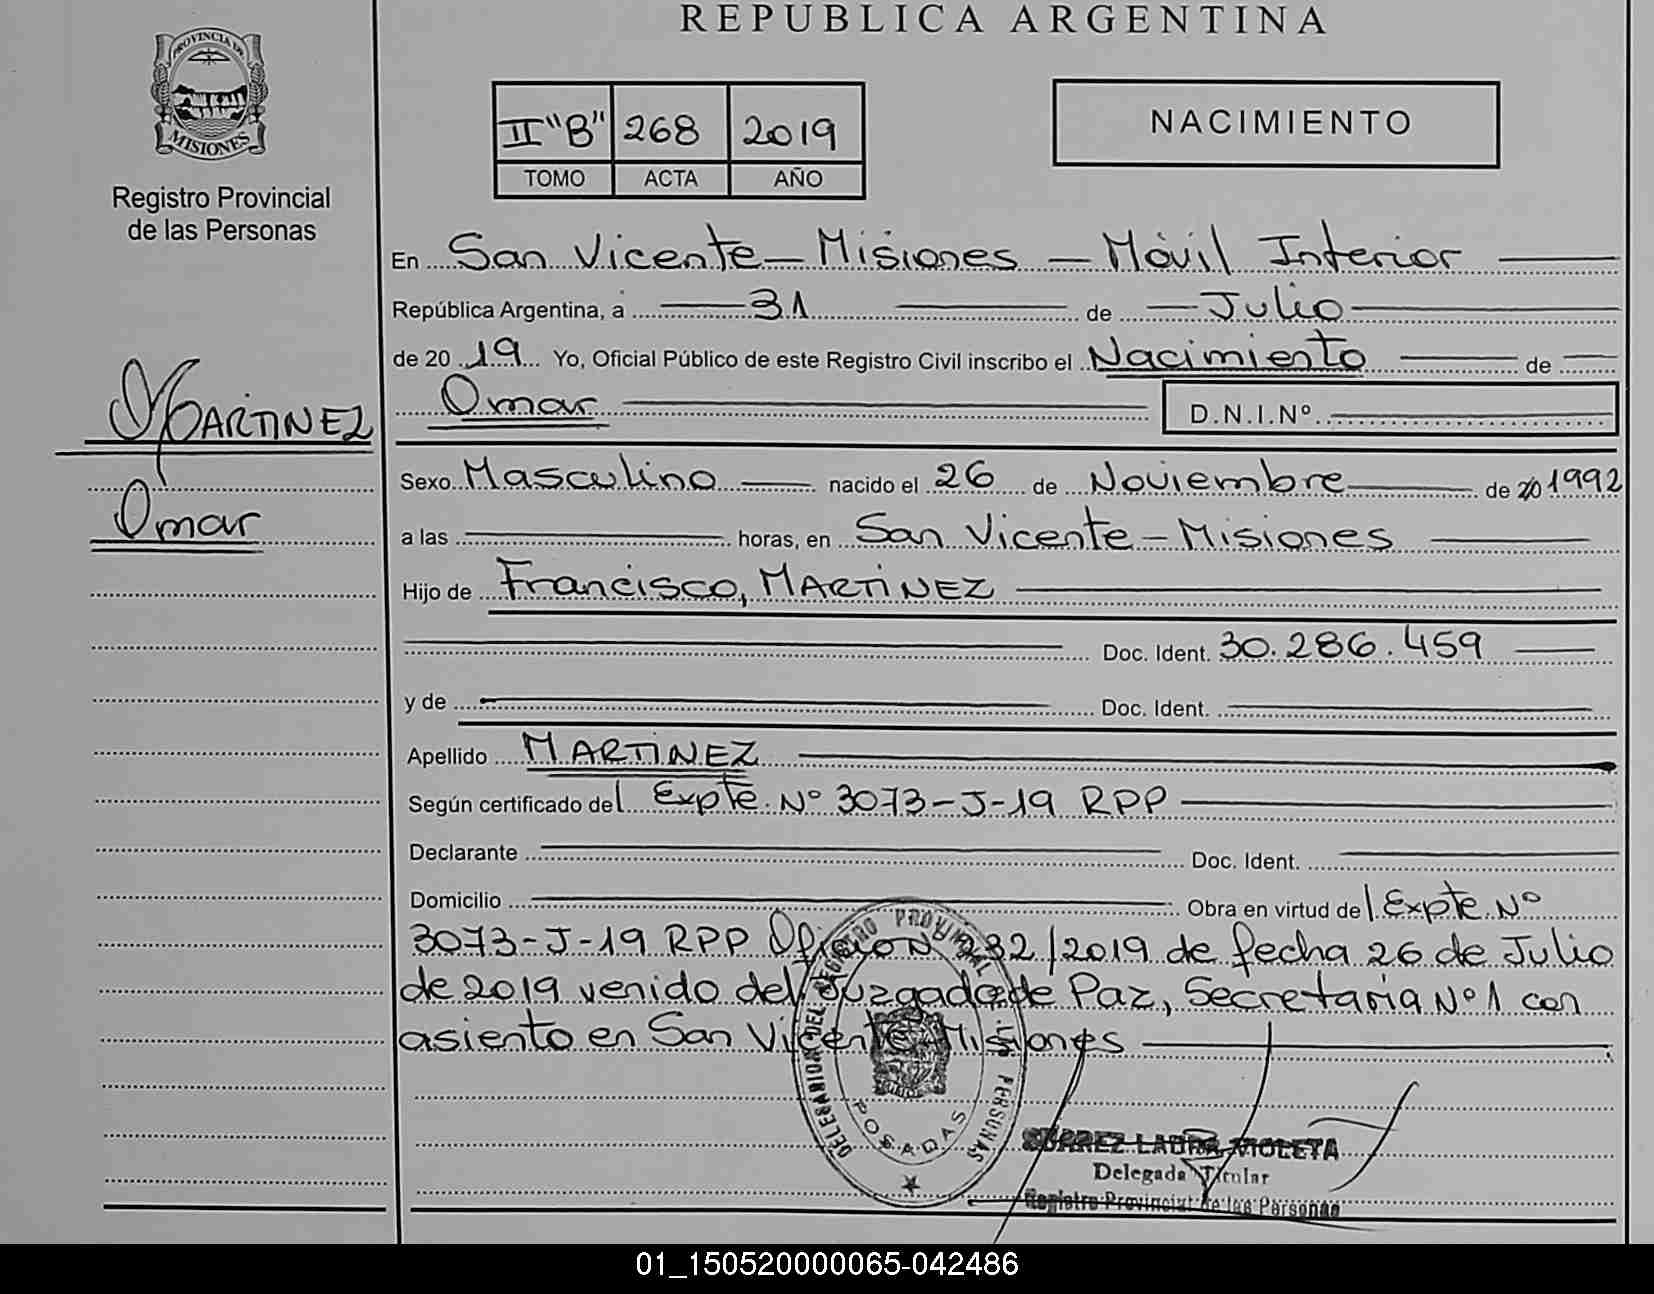 REPUBLICA ARGENTINA
PROVINCIA DE
MISIONES
Registro Provincial
de las Personas
II "B" 268 2019
TOMO ACTA AÑO
NACIMIENTO
En San Vicente - Misiones - Móvil Interior
República Argentina, a 31 de Julio
de 2019 Yo, Oficial Público de este Registro Civil inscribo el Nacimiento de
Omar D.N.I.Nº
MARTINEZ
Omar
Sexo Masculino nacido el 26 de Noviembre de 1992
a las horas, en San Vicente - Misiones
Hijo de Francisco, MARTINEZ
Doc. Ident. 30.286.459
y de Doc. Ident.
Apellido MARTINEZ
Según certificado del Expte. Nº 3073-J-19 RPP
Declarante Doc. Ident.
Domicilio Obra en virtud del Expte. Nº
3073-J-19 RPP Oficio Nº 232/2019 de fecha 26 de Julio
de 2019 venido del Juzgado de Paz, Secretaria Nº 1 con
asiento en San Vicente Misiones
DELEGACION DEL REGISTRO PROVINCIAL DE LAS PERSONAS
POSADAS
SUAREZ LAURA VIOLETA
Delegada Titular
Registro Provincial de las Personas
01_150520000065-042486